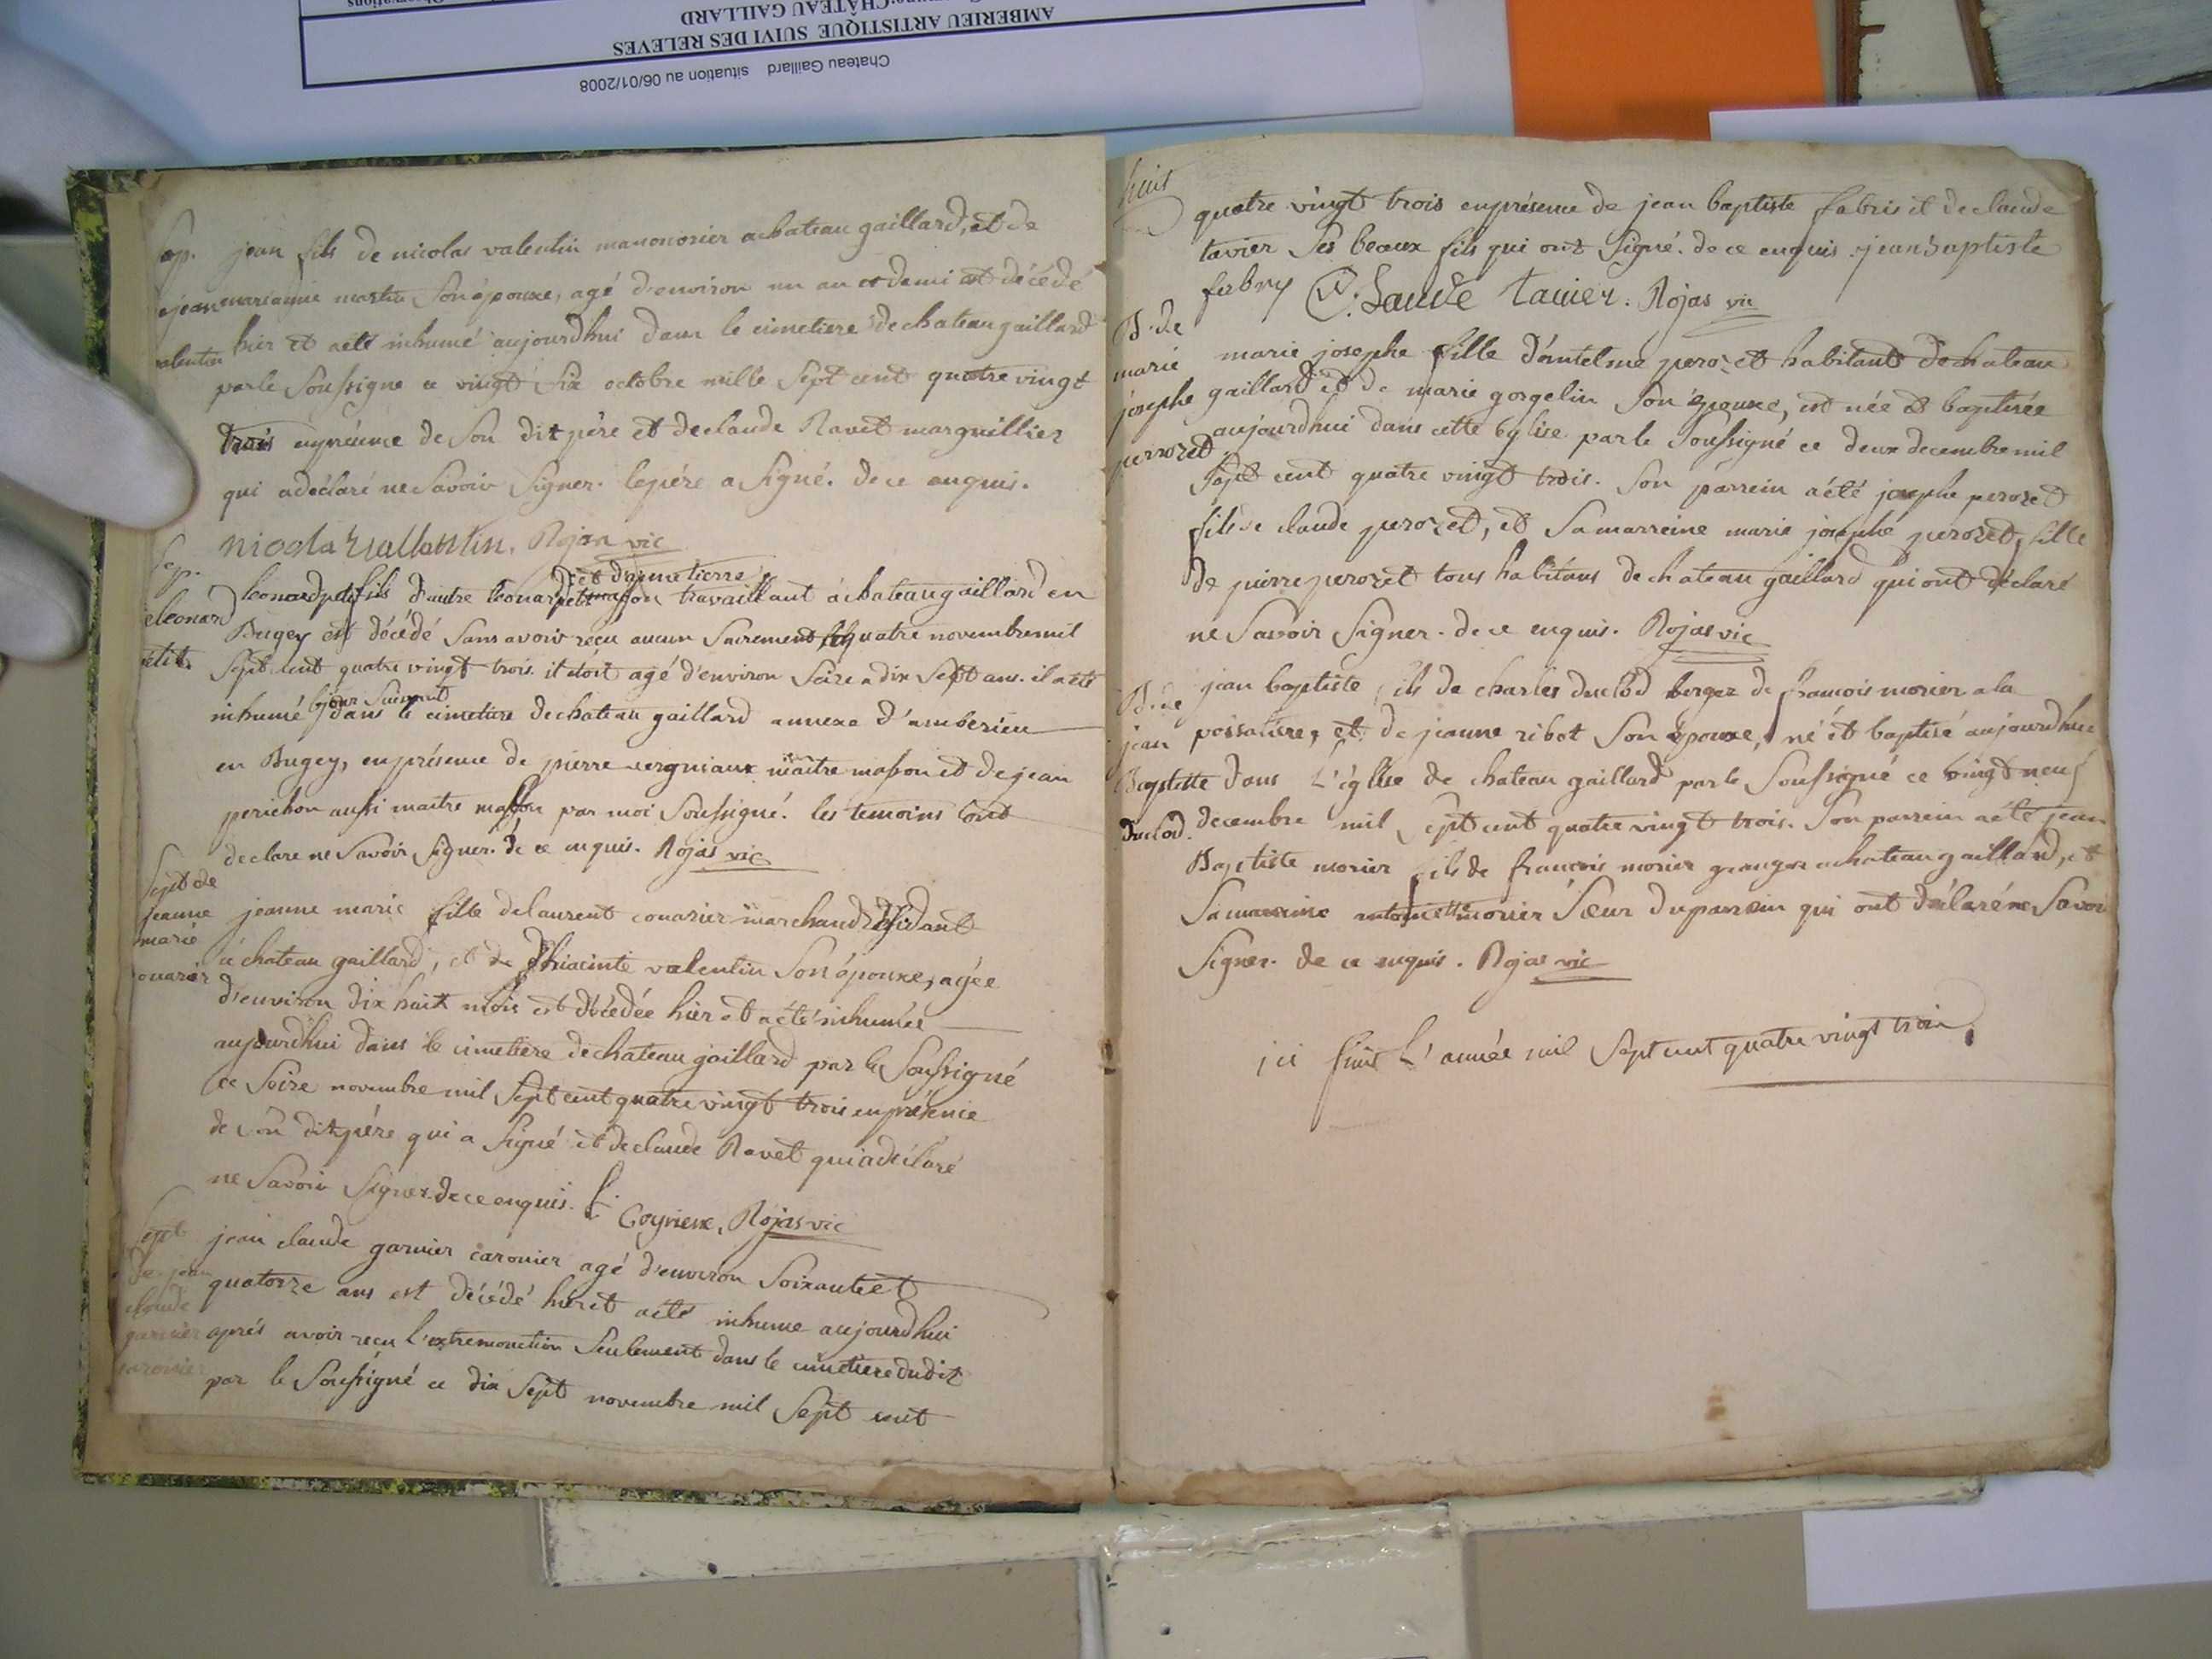 Chateau Gaillard situation au 06/01/2008
AMBERIEU ARTISTIQUE SUIVI DES RELEVES
CHÂTEAU GAILLARD
Sep.
jean
valentin
jean fils de nicolas valentin manonorier achateau gaillard, et de
marianne martin son épouse, agé d'environ un an et demi est décédé
hier et aété inhumé aujourdhui dans le cimetiere de chateau gaillard
parle soussigne ce vingt six octobre mille sept cent quatre vingt
trois enprésence de son dit père et declaude Ravet marguillier
qui adéclaré ne savoir signer. lepére a signé. de ce enquis.
nicola vallantin. Rojas vic
Sep.
leonard
petit
et dometierre
leonard petit fils d'autre leonard petit masson travaillant àchateaugaillard en
Bugey est décédé sans avoir reçu aucun sacrement le quatre novembre mil
sept cent quatre vingt trois. il étoit agé d'environ seize a dix sept ans. il aété
le jour suivant
inhumé dans le cimetiere dechateau gaillard annexe d'amberieu
en Bugey, enprésence de pierre vergniaux maître masson et dejean
perichon aussi maitre masson par moi soussigné. les temoins ont
declare ne savoir signer. de ce enquis. Rojas vic
Sept de
jeanne
marie
jeanne marie fille delaurent couarier marchand résidant
à chateau gaillard, et de hiacinte valentin son épouse, agée
d'environ dix huit mois est décédée hier et aété inhumée
aujourdhui dans le cimetière dechateau gaillard par le soussigné
ce seize novembre mil sept cent quatre vingt trois enprésence
de son dit père qui a signé et declaude Ravet qui adéclaré
ne savoir signer. de ce enquis.
Rojas vic
Sept
de jean
claude
garnier
caronier
jean claude garnier caronier agé d'environ soixante et
quatorze ans est décédé hier et aété inhume aujourdhui
aprés avoir reçu l'extremonction seulement dans le cimetiere dudit
par le soussigné ce dix sept novembre mil sept cent
huit
quatre vingt trois enprésence de jean baptiste fabri et declaude
tavier ses beaux fils qui ont signé. de ce enquis. jean baptiste
fabry Claude tavier. Rojas vic
B. de
marie
josephe
perrozet
marie josephe fille d'antelme perozet habitant dechateau
gaillard et de marie gorgelin son épouse, est née et baptisée
aujourdhui dans cette église parle soussigné ce deux decembre mil
sept cent quatre vingt trois. son parrein aété josephe perozet
fils de claude perozet, et samarreine marie josephe perozet, fille
de pierre perozet tous habitans dechateau gaillard qui ont déclaré
ne savoir signer. de ce enquis. Rojas vic
B. de
jean
Baptiste
duclod.
jean baptiste fils de charles duclod berger de francois morier a la
et de jeanne ribot son épouse, né et baptisé aujourdhui
dans l'église de chateau gaillard parle soussigné ce vingt neuf
decembre mil sept cent quatre vingt trois. son parrein aété jean
Baptiste morier fils de francois morier granger achateau gaillard, et
sa marreine antoinette morier sœur duparrein qui ont déclaré ne savoir
signer. de ce enquis. Rojas vic
ici finit l'année mil sept cent quatre vingt trois